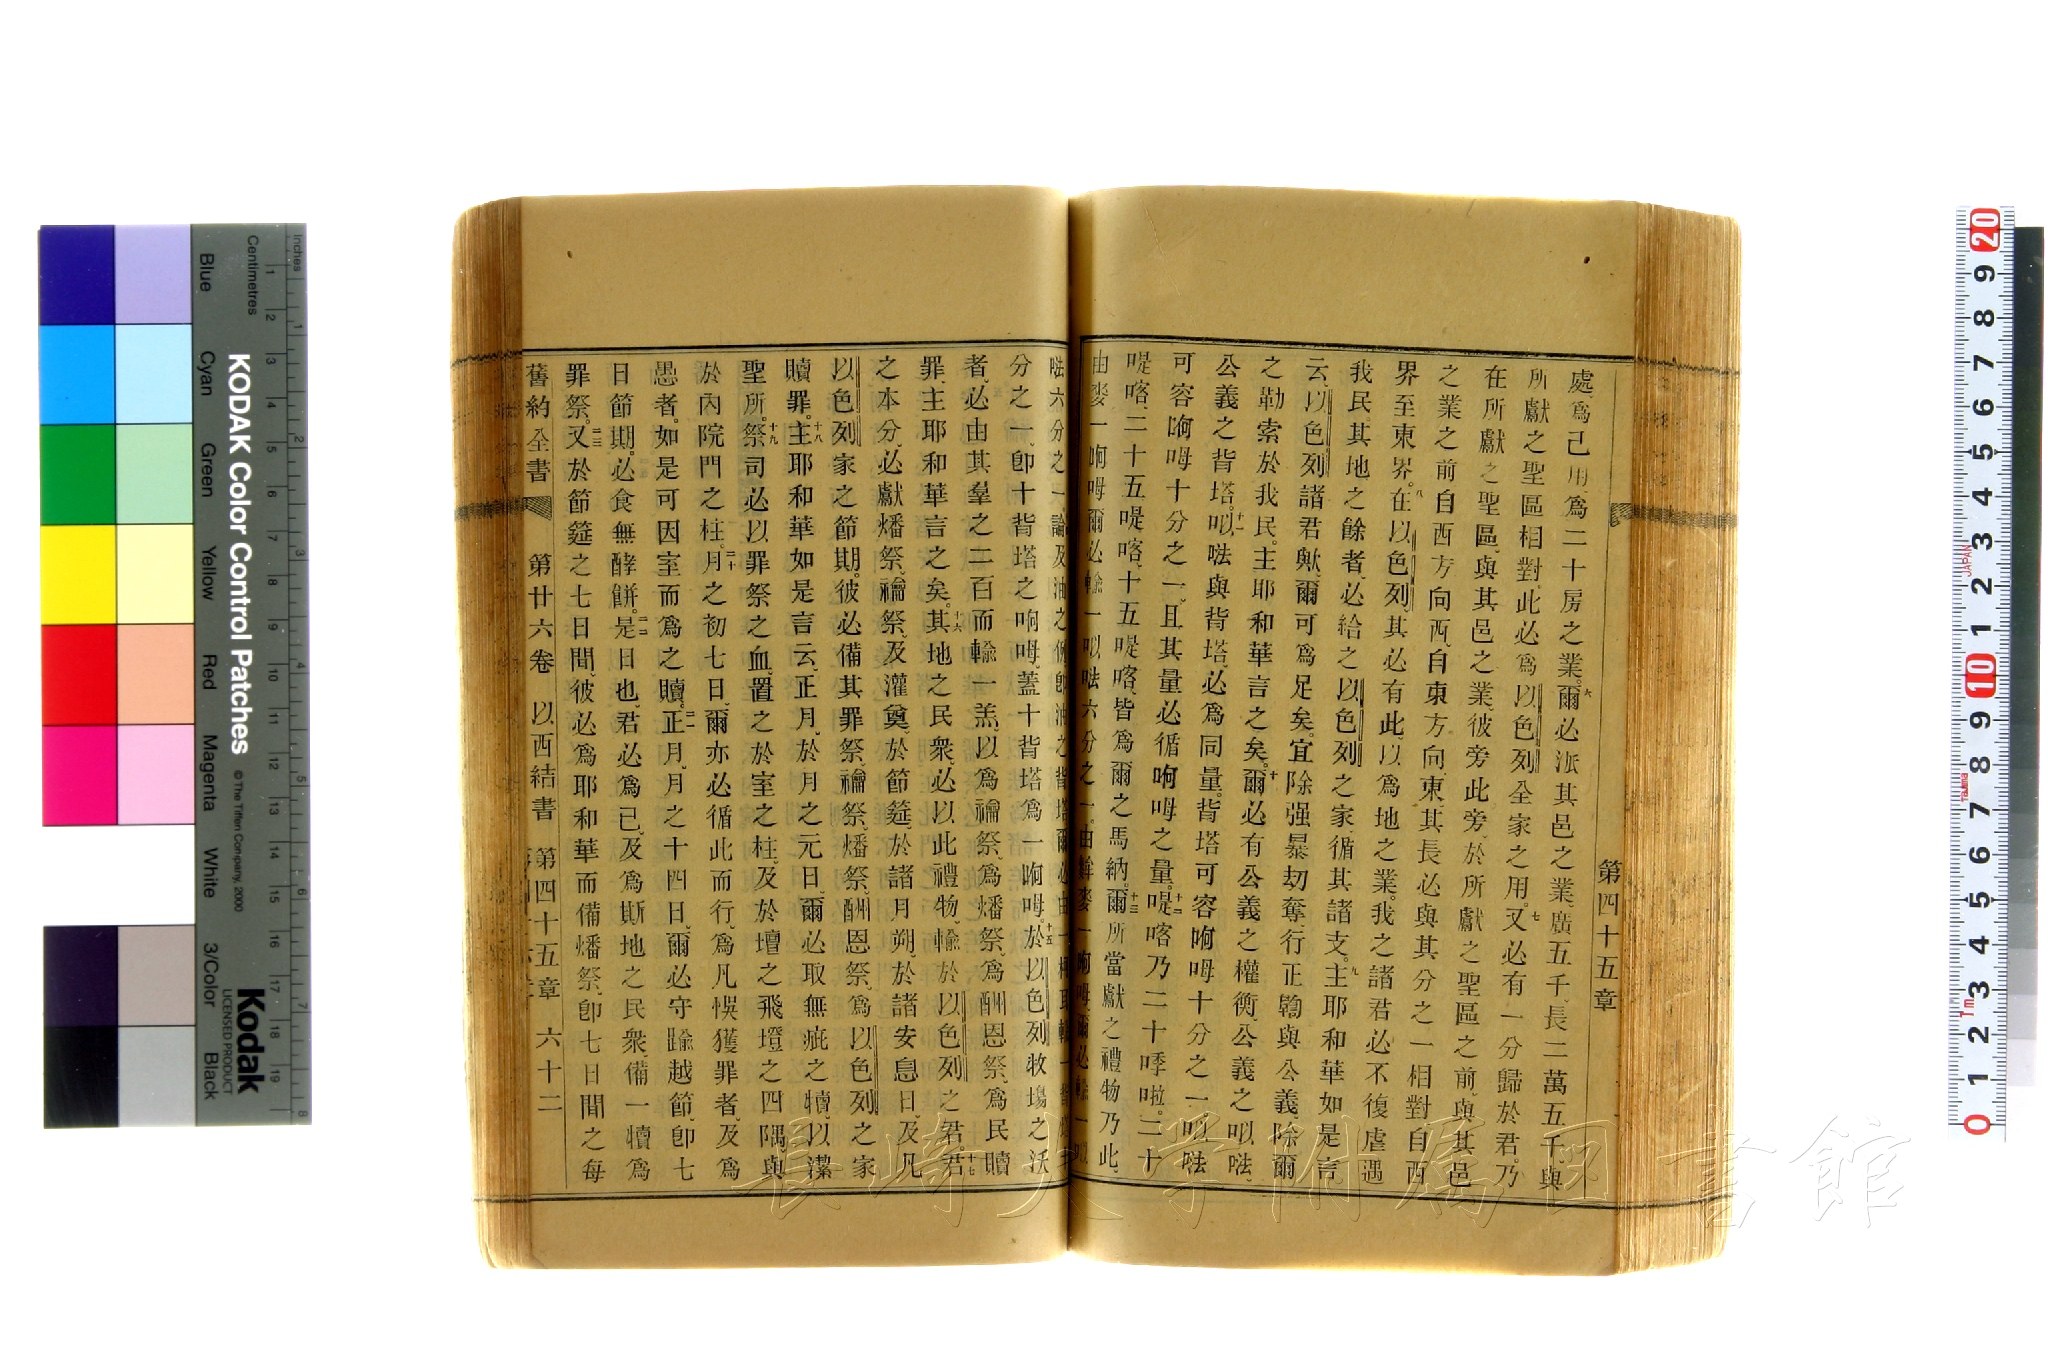 第四十五章
處爲己用、爲二十房之業。六爾必派其邑之業、廣五千、長二萬五千、與
所獻之聖區相對、此必爲以色列全家之用。七又必有一分歸於君。乃
在所獻之聖區、與其邑之業、彼旁此旁、於所獻之聖區之前、與其邑
之業之前、自西方向西、自東方向東、其長必與其分之一相對、自西
界至東界。八在以色列、其必有此、以爲地之業。我之諸君必不復虐遇
我民、其地之餘者、必給之以色列之家、循其諸支。九主耶和華如是言
云、以色列諸君歟、爾可爲足矣。宜除强暴刧奪、行正鞫與公義、除爾
之勒索於我民。主耶和華言之矣。十爾必有公義之權衡、公義之㕥𠵽、
公義之背塔。十一㕥𠵽與背塔、必爲同量。背塔可容㖃呣十分之一、㕥𠵽
可容㖃呣十分之一、且其量必循㖃呣之量。十二㖷喀乃二十㖆啦。二十
㖷喀、二十五㖷喀、十五㖷喀、皆爲爾之馬納。十三爾所當獻之禮物乃此、
由麥一㖃呣、爾必輸一㕥𠵽六分之一。由
分之一、卽十背塔之㖃呣、蓋十背塔爲一㖃呣。十五於以色列牧塲之沃
者、必由其羣之二百而輸一羔、以爲禴祭、爲燔祭、爲酬恩祭、爲民贖
罪、主耶和華言之矣。十六其地之民衆、必以此禮物、輸於以色列之君。十七君
之本分、必獻燔祭、禴祭、及灌奠、於節筵、於諸月朔、於諸安息日、及凡
以色列家之節期。彼必備其罪祭、禴祭、燔祭、酬恩祭、爲以色列之家
贖罪。十八主耶和華如是言云、正月、於月之元日、爾必取無疵之犢、以潔
聖所。十九祭司必以罪祭之血、置之於室之柱、及於壇之飛墱之四隅、與
於內院門之柱。二十月之初七日、爾亦必循此而行、爲凡悞獲罪者、及爲
愚者。如是可因室而爲之贖。二一正月、月之十四日、爾必守踰越節、卽七
日節期。必食無酵餅。二二是日也、君必爲己、及爲斯地之民衆、備一犢爲
罪祭。二三又於節筵之七日間、彼必爲耶和華而備燔祭、卽七日間之每
舊約全書 第廿六卷 以西結書 第四十五章 六十二
KODAK Color Control Patches
© The Tiffen Company, 2000
Kodak
LICENSED PRODUCT
Inches
Centimetres
Blue Cyan Green Yellow Red Magenta White 3/Color Black
長崎大学附属図書館
JAPAN
Tajima